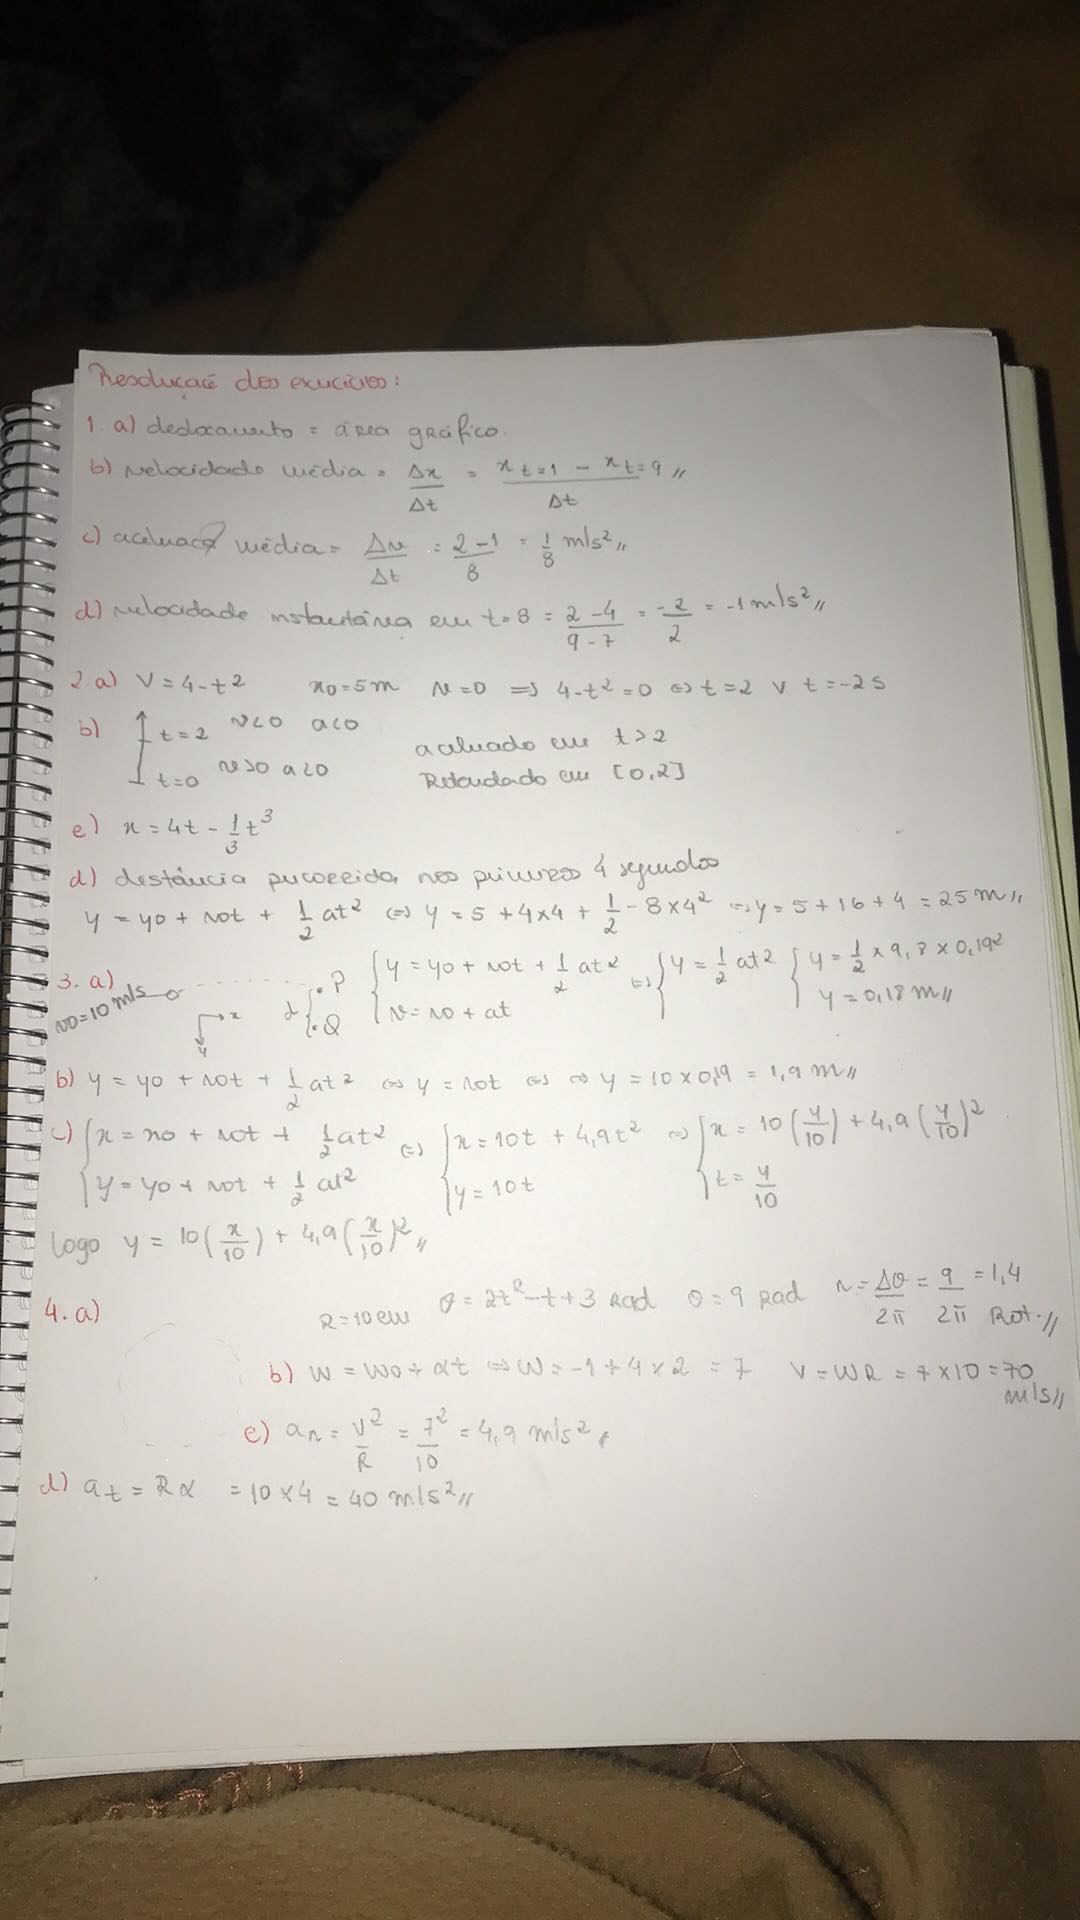 Resolução dos exercícios:
1. a) deslocamento = área gráfico.
b) velocidade média = Δx/Δt = (x t=1 - x t=9)/Δt //
c) aceleração média = Δv/Δt = (2-1)/8 = 1/8 m/s² //
d) velocidade instantânea em t=8 = (2-4)/(9-7) = -2/2 = -1 m/s² //
2. a) V = 4-t² x0=5m v=0 ⇒ 4-t²=0 ⇔ t=2 v t=-2s
b) t=2 v<0 a<0
acelerado em t>2
t=0 v>0 a<0
Retardado em [0,2]
c) x = 4t - 1/3 t³
d) distância percorrida nos primeiros 4 segundos
y = y0 + v0t + 1/2 at² ⇔ y = 5 + 4x4 + 1/2 - 8x4² ⇔ y = 5 + 16 + 4 = 25m //
3. a) v0=10 m/s P {y = y0 + v0t + 1/2 at² ⇔ {y = 1/2 at² {y = 1/2 x 9,8 x 0,19²
x y d Q v = v0 + at y = 0,18 m //
b) y = y0 + v0t + 1/2 at² ⇔ y = v0t ⇔ ⇔ y = 10 x 0,19 = 1,9 m //
c) {x = x0 + v0t + 1/2 at² ⇔ {x = 10t + 4,9t² ⇔ {x = 10(y/10) + 4,9(y/10)²
y = y0 + v0t + 1/2 at² y = 10t t = y/10
logo y = 10(x/10) + 4,9(x/10)² //
4. a) R = 10cm θ = 2t² - t + 3 Rad θ = 9 Rad n = Δθ/2π = 9/2π = 1,4 Rot. //
b) W = W0 + αt ⇔ W = -1 + 4 x 2 = 7 V = WR = 7 x 10 = 70 m/s //
c) an = V²/R = 7²/10 = 4,9 m/s²
d) at = Rα = 10 x 4 = 40 m/s² //